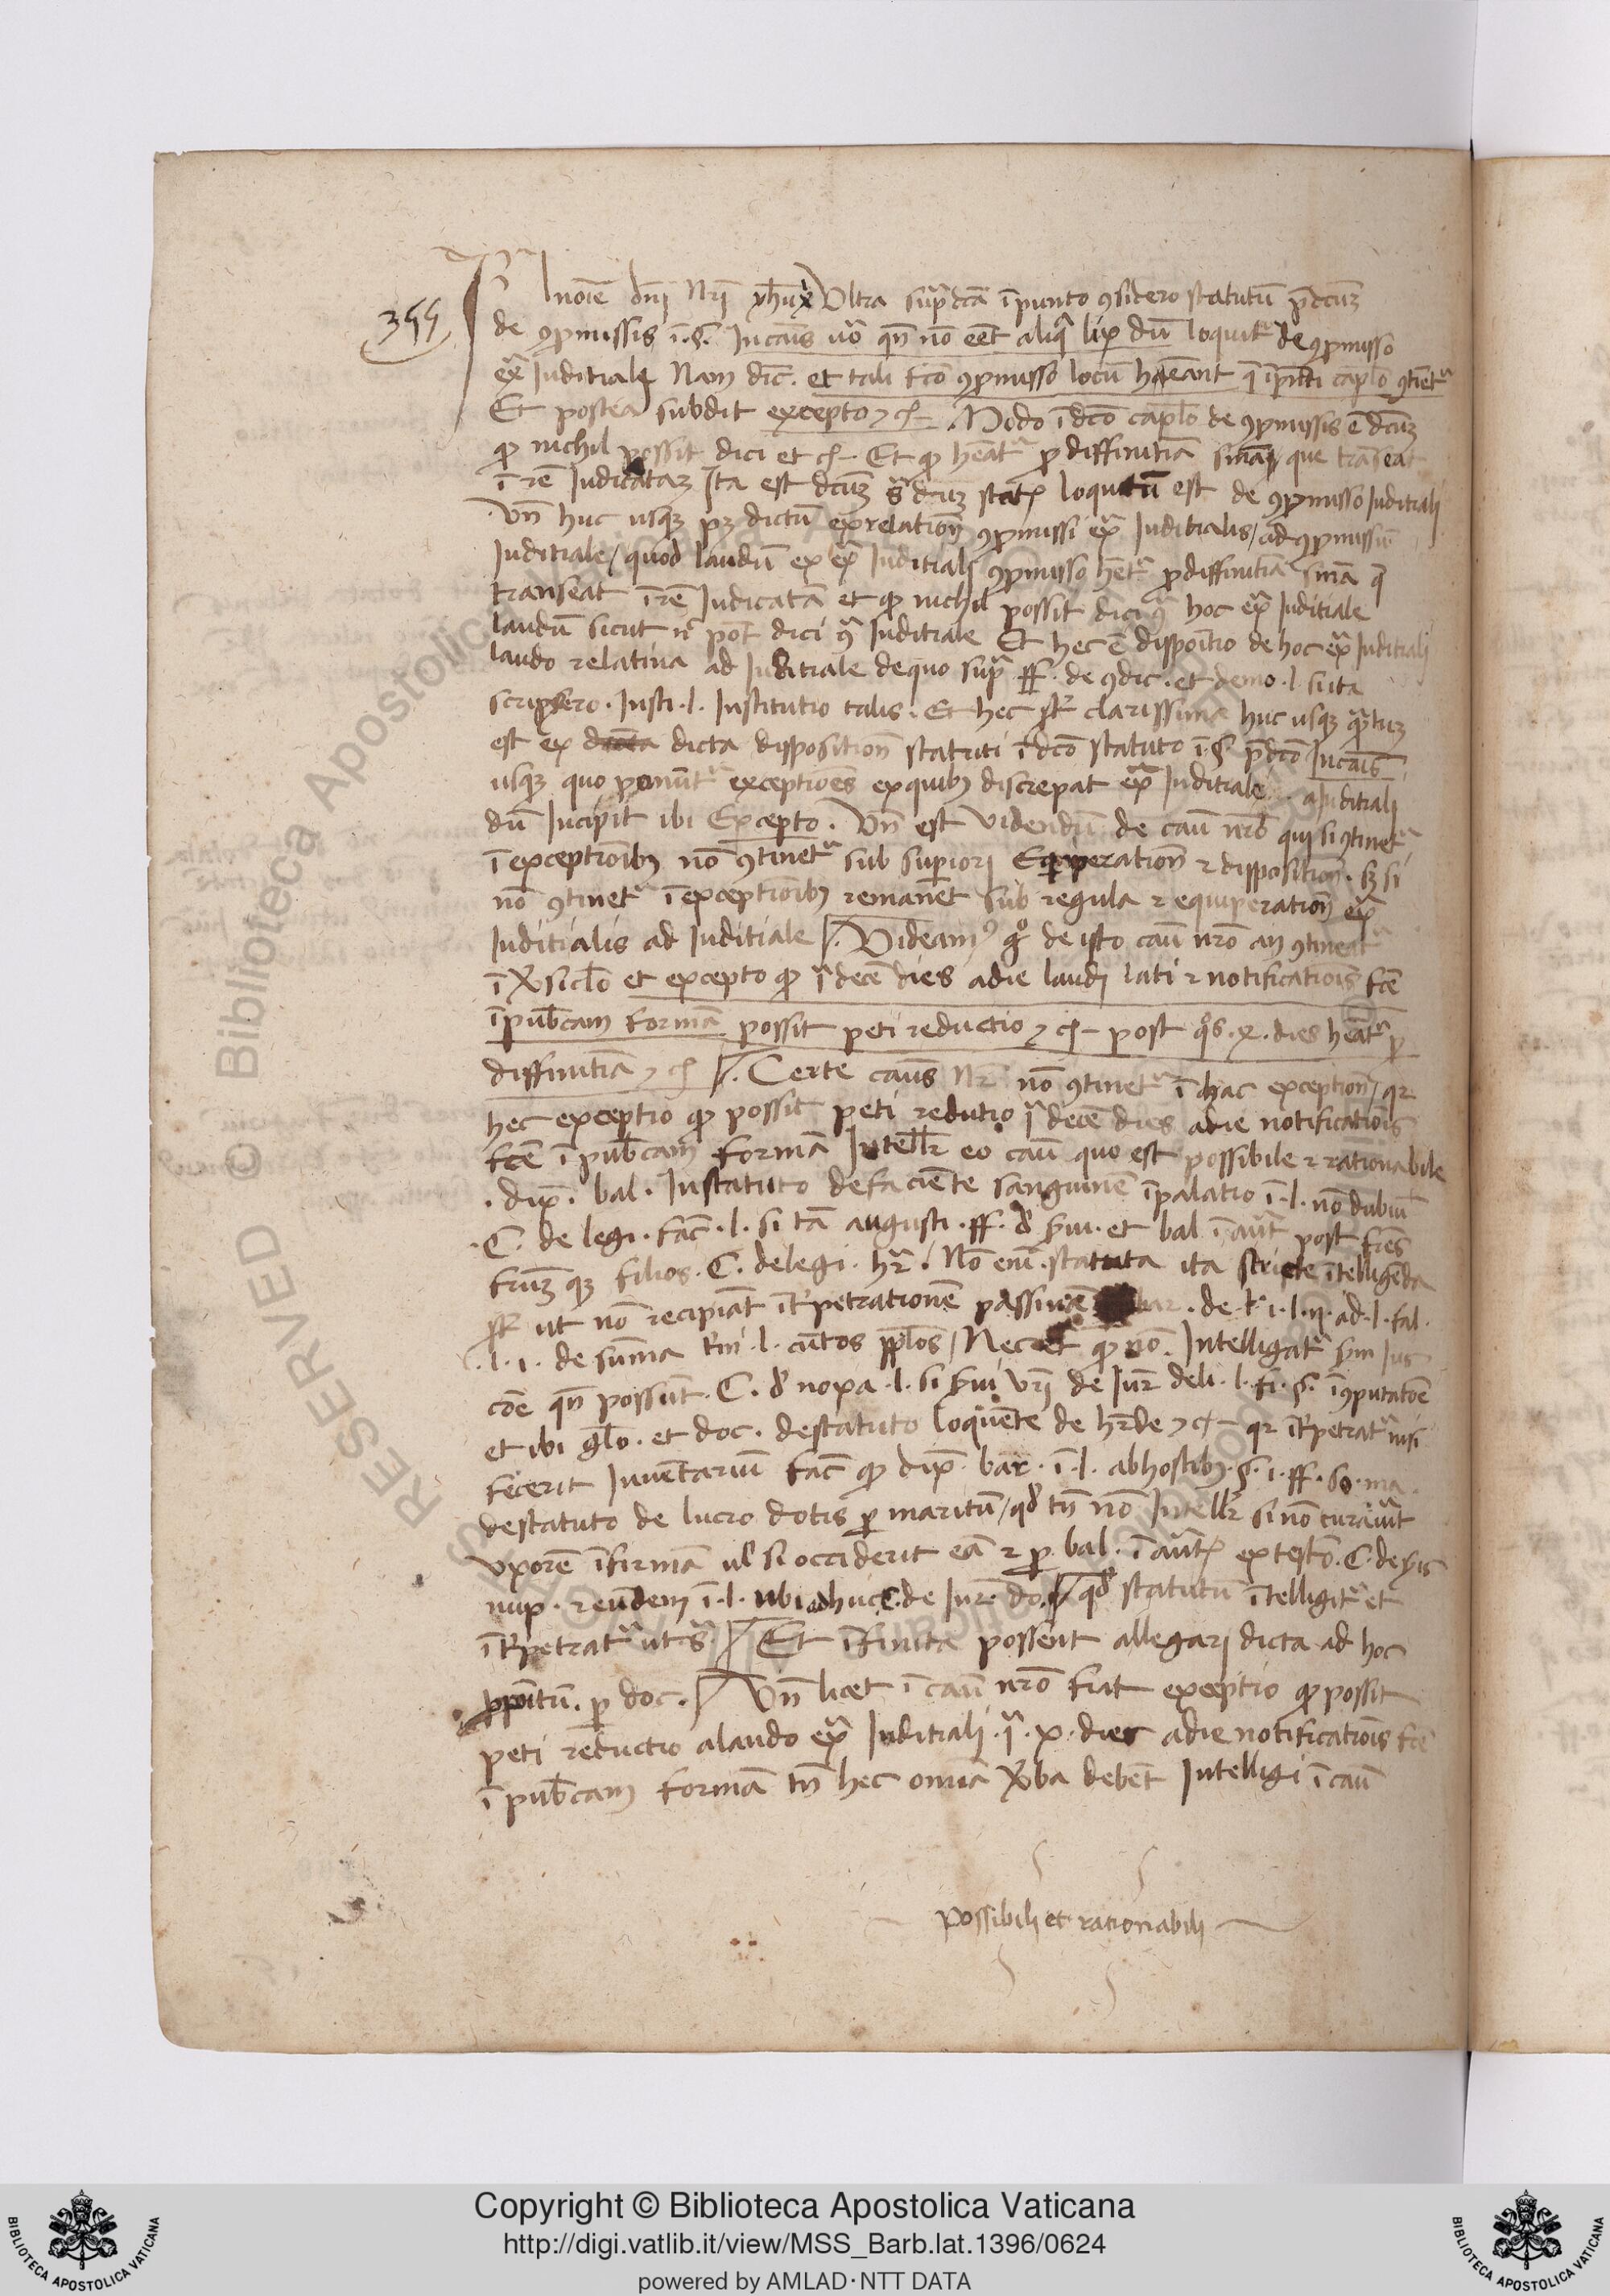 355
In noie dnj Nrj yhu x Ultra supdca ī punto ꝯsidero statutū p̄dcuȝ
de ꝯpmissis ī.§. In cais uo qn̄ nō eēt aliqa lis dū loquit᷑ de ꝯpmisso
exa Juditialj Nam dic. et tali fcō ꝯpmisso locū habeant q̄ ī pn̄ti caplō ꝯtinet᷑
Et postea subdit excepto ⁊ c̄ Modo ī dcō caplō de ꝯpmissis ē dcuȝ
ꝙ nichil possit dici et c̄ Et ꝙ heat᷑ ꝓ diffinitia sn̄ia que transeat
ī rē Judicataȝ Ita est dcuȝ statȝ loqutū est de ꝯpmisso Juditialj
Vn̄ huc usqȝ pȝ dictū ex relation̄ ꝯpmissi exa Juditialis / ad ꝯpmissū
Juditiale / quod laudū ex exa Juditialj ꝯpmisso het᷑ ꝓ diffinitia sn̄ia q̄
transeat ī rē Judicatā et ꝙ nichil possit dici ꝯa hoc exa Juditiale
laudū sicut n̄ pōt dici ꝯa Juditiale Et hec ē dispoitio de hoc exa Juditialj
laudo relatiua ad Juditiale de quo supa ff. de ꝯdic. et demo. l. si ita
scripsero. Insti. l. Institutio talis. Et hec st̄ clarissima huc usqȝ qatuȝ
est ex dicta disposition̄ statuti ī dcō statuto ī.§. p̄dcō In cais
usqȝ quo ponunt᷑ exceptiones ex quibȝ discrepat exa Juditiale a Juditialj
dū Incipit ibi Excepto. Vn̄ est videndū de caū nr̄o qui si ꝯtinet᷑
ī exceptionibȝ nō ꝯtinet᷑ sub superiorj Equiperation̄ ⁊ disposition̄. sȝ si
nō ꝯtinet᷑ ī exceptionibȝ remanet sub regula ⁊ equiperation̄ exa
Juditialis ad Juditiale Videamꝰ go de isto caū nr̄o an ꝯtineat᷑
ī v̄siclō et excepto ꝙ ja decē dies a die laudj lati ⁊ notificatiois fcē
ī publcam formā possit peti reductio ⁊ c̄ post qos .x. dies heat᷑ ꝓ
diffinitia ⁊ c̄ Certe caus nr̄ nō ꝯtinet᷑ ī hac exception̄ / qr
hec exceptio ꝙ possit peti redutio ja decē dies a die notificatiois
fcē ī publcam formā Intellr̄ eo caū quo est possibile ⁊ rationabile
. dix. bal. In statuto de faciente sanguinē ī palatio ī. l. nō dubiū
. C. de legi. fac. l. si tā augusti. ff. et bal ī aut post fres
C. de legi. hr. Nō eni. statuta ita stricte ītelligēda
st̄ ut nō recipiāt īt̄petrationē passiuā
. l. 1. de summa l. cuntos pplos / Nec et ꝙ nō. Intelligat᷑
qn̄ possunt. C. de noxa. l. si de Jur̄ deli. l. fi. §. ī ꝯputatōe
et ibi glō. et doc. de statuto loquente de hr̄de ⁊ c̄ qr īt̄petrat᷑ nisi
fecerit Inuentariū fac ꝙ dix. bar. ī. l. ab hostibȝ. §. 1. ff. so. ma.
de statuto de lucro dotis ꝑ maritū / qd̄ tn̄ nō Intellr̄ si nō curauit
uxorē ī firmā ul si occiderit eā ⁊ ꝑ. bal. ī autȝ ex testō. C. de
nup. ⁊ eundem ī. l. ubi adhuc C. de Jure do. qd̄ statutū ītelligit᷑ et
īt̄petrat᷑ ut sa. Et īfinita possent allegarj dicta ad hoc
ꝓpoitū. ꝑ doc. Vn̄ licet ī caū nr̄o fiat exceptio ꝙ possit
peti reductio a laudo exa Juditialj. ja. x. dies a die notificatiois fcē
ī publcam formā tn̄ hec omia v̄ba debēt Intelligi ī caū
possibilj et rationabilj
RESERVED © Biblioteca Apostolica Vaticana
Copyright © Biblioteca Apostolica Vaticana
http://digi.vatlib.it/view/MSS_Barb.lat.1396/0624
powered by AMLAD·NTT DATA
BIBLIOTECA APOSTOLICA VATICANA
BIBLIOTECA APOSTOLICA VATICANA